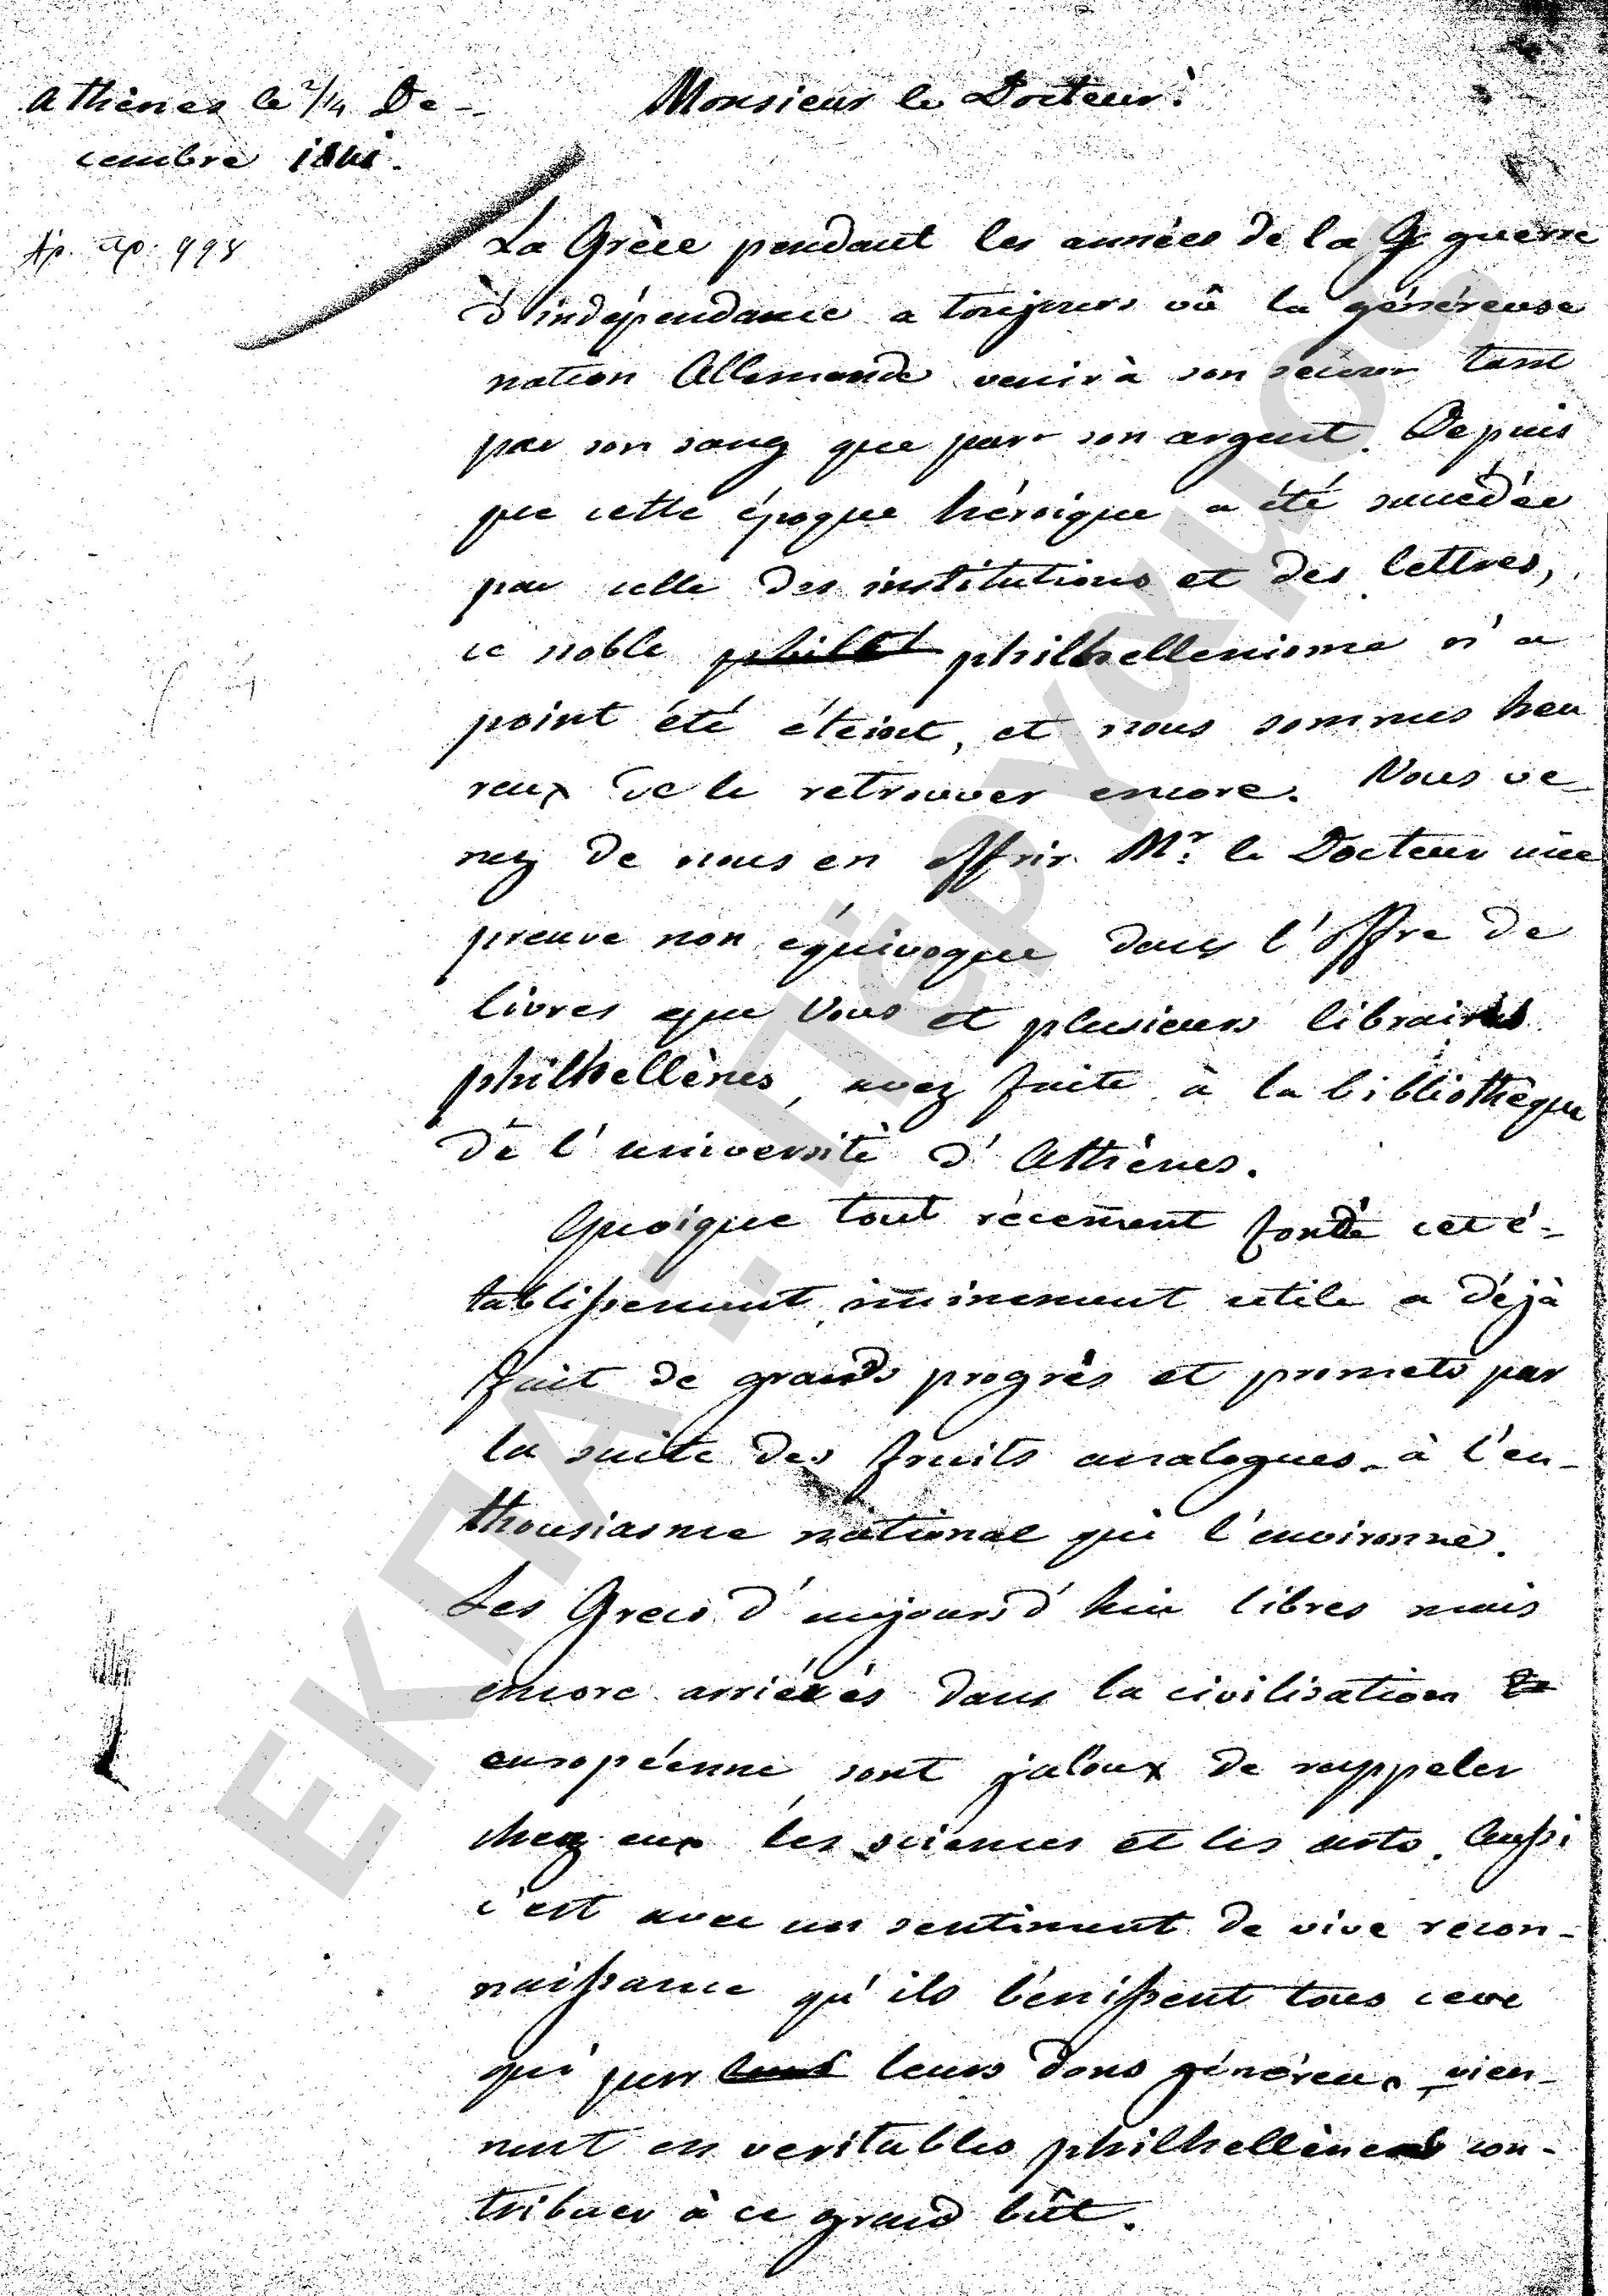 Athènes le 2/14 De-
cembre 1841.
Monsieur le Docteur!
Ἀρ. πρ. 998
La Grèce pendant les années de la G guerre
d'indépendance a toujours vû la généreuse
nation Allemande venir à son secour tant
par son sang que par son argent. Depuis
que cette époque héroique a été succédée
par celle des institutions et des lettres,
ce noble philhellenisme n'a
point été éteint, et nous sommes heu
reux de le retrouver encore. Vous ve-
nez de nous en offrir Mr. le Docteur une
preuve non équivoque dans l'offre de
livres que Vous et plusieurs libraires
philhellènes, avez faite à la bibliothèque
de l'université d'Athènes.
Quoique tout récement fondé cet é-
tablissement iminement utile a déjà
fait de grands progrès et promets par
la suite des fruits analogues à l'en-
thousiasme national qui l'environne.
Les Grecs d'aujourd'hui libres mais
encore arriérés dans la civilisation
européenne sont jaloux de rappeler
chez eux les sciences et les arts. Aussi
c'est avec un sentiment de vive recon-
naissance qu'ils bénissent tous ceux
qui par leurs dons généreux vien-
nent en veritables philhellènes con-
tribuer à ce grand bût.
ΕΚΠΑ - Πέργαμος